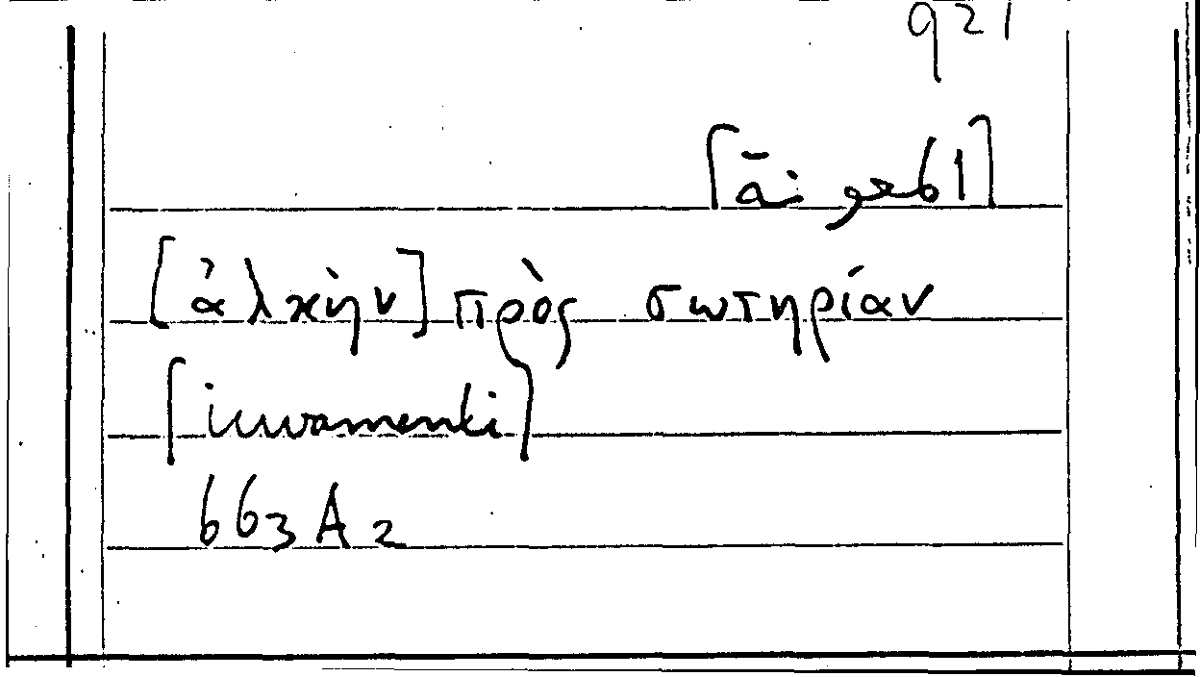 921
[ἀλκὴν] πρὸς σωτηρίαν
[iuvamenti]
663A2